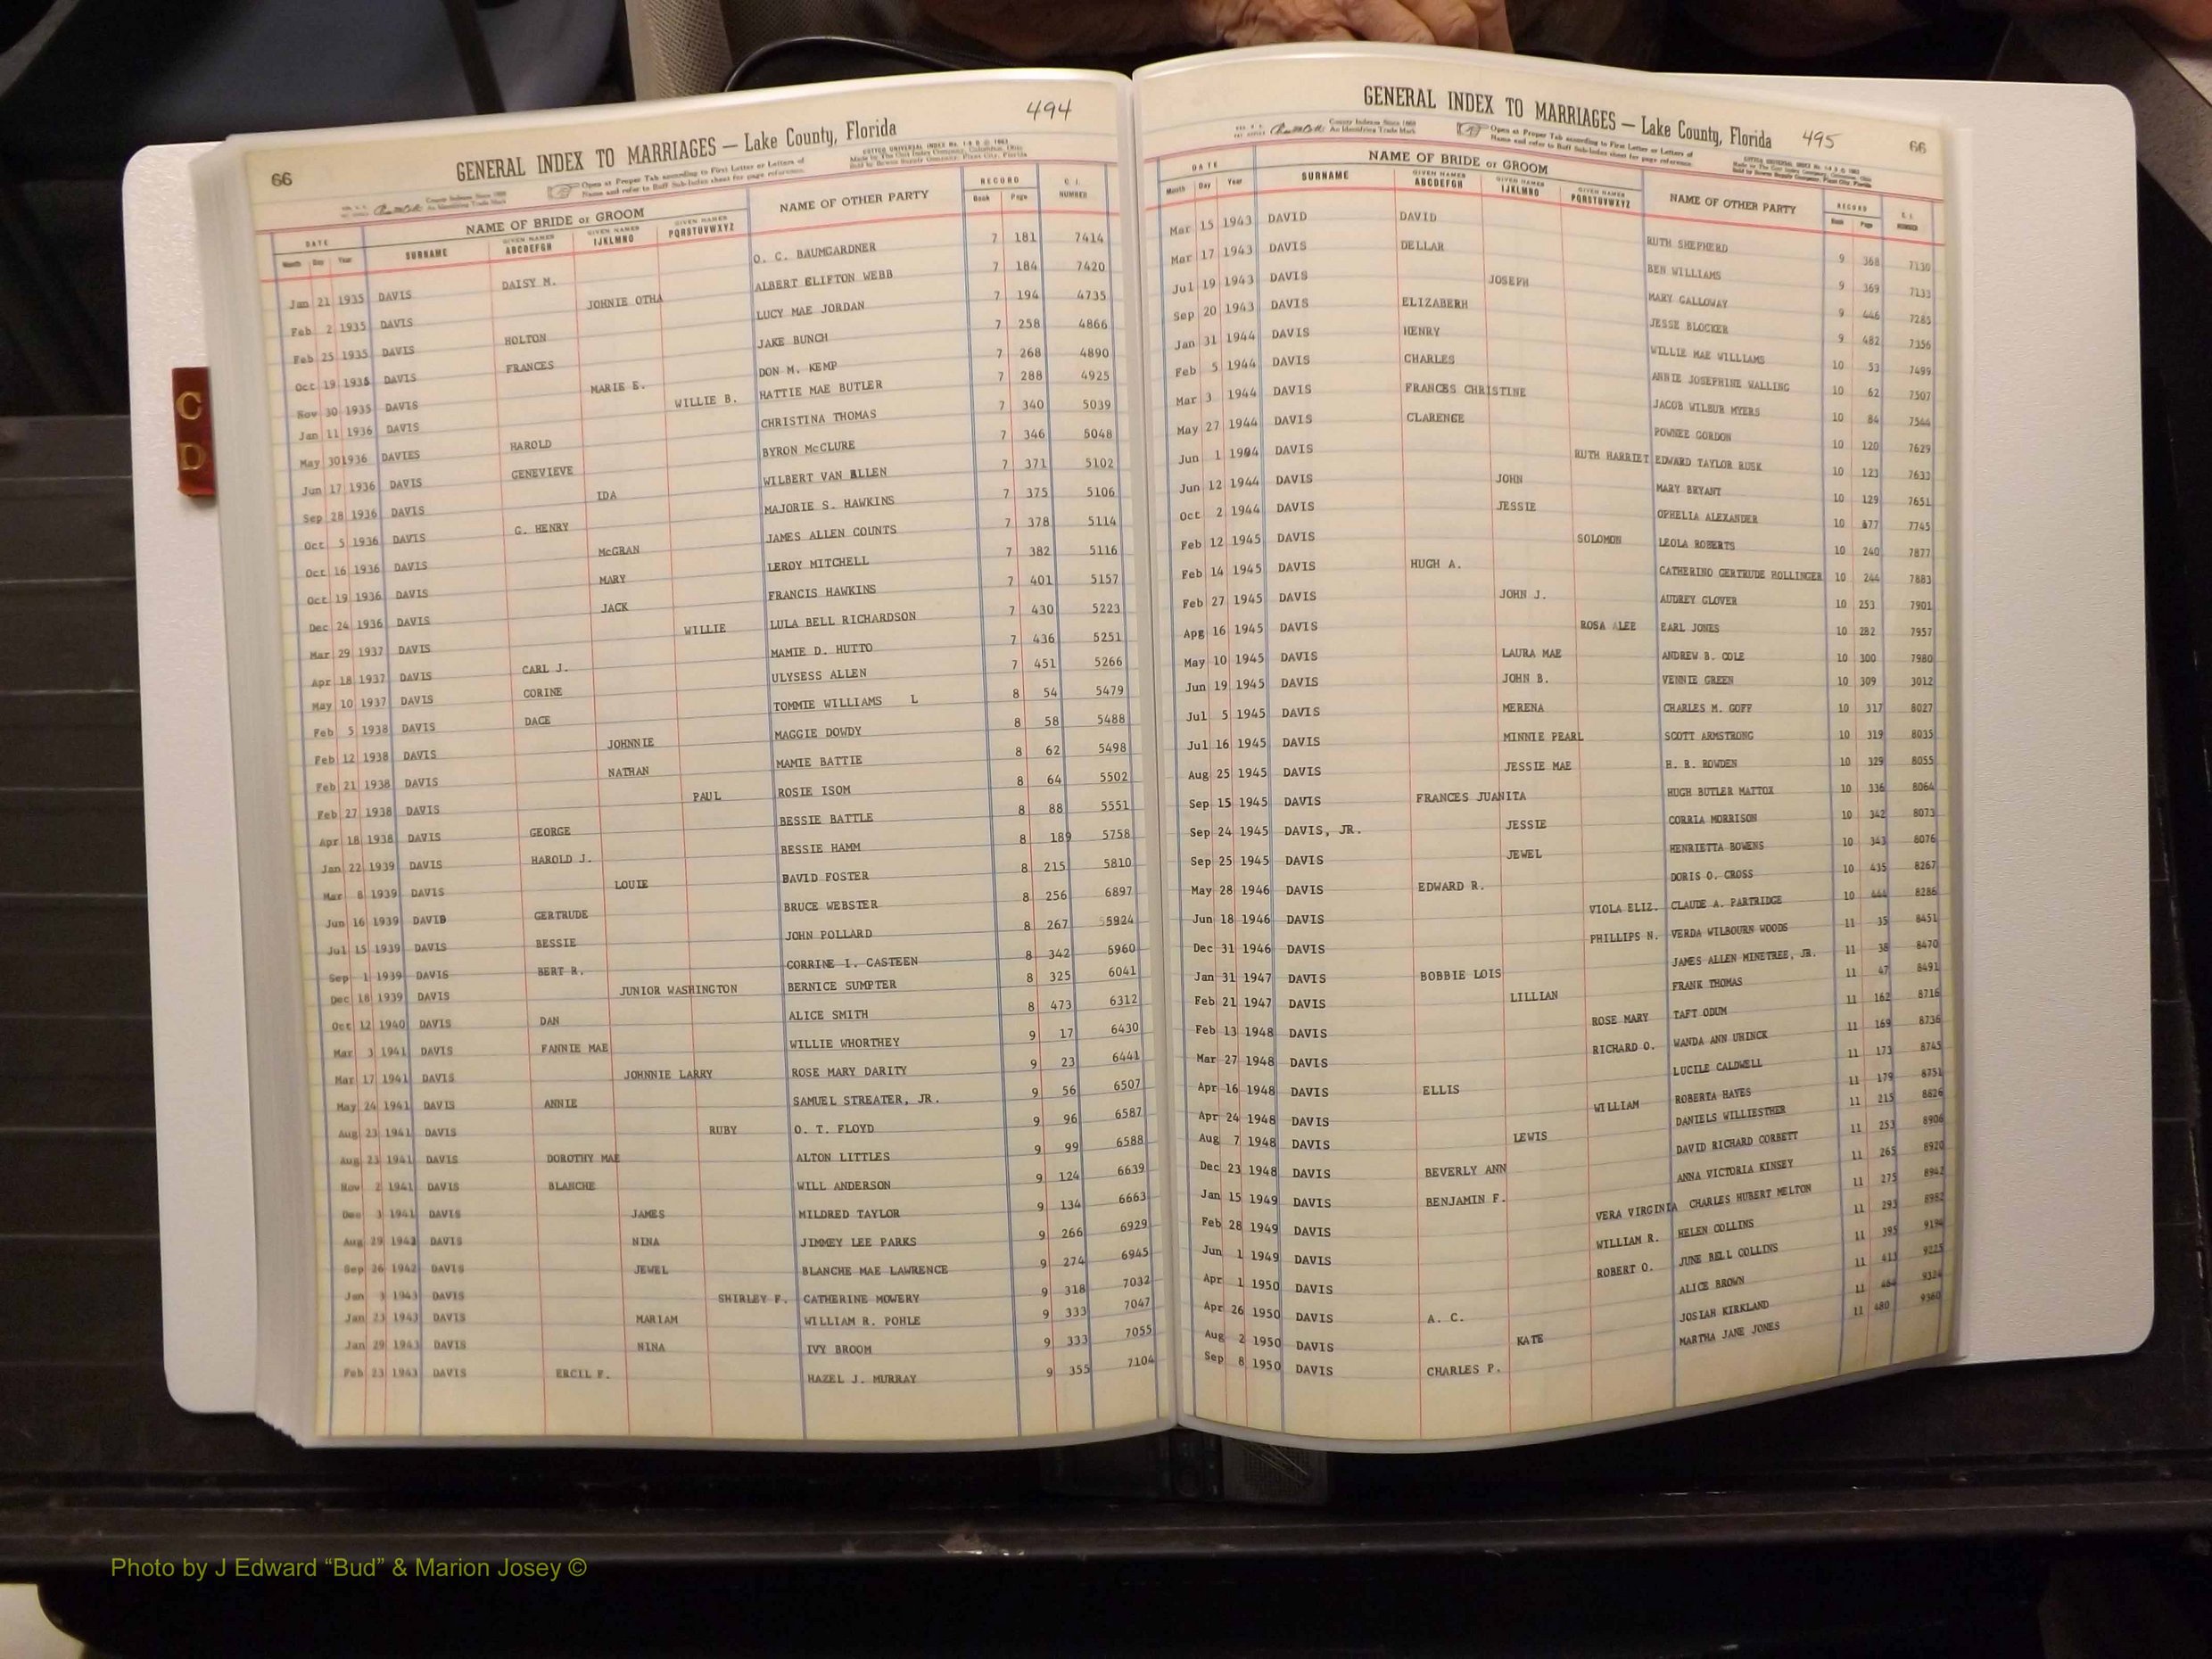 494
66
GENERAL INDEX TO MARRIAGES — Lake County, Florida
County Indexes Since 1888
An Identifying Trade Mark
Open at Proper Tab according to First Letter or Letters of
Name and refer to Buff Sub-Index sheet for page reference.
DATE NAME OF BRIDE or GROOM NAME OF OTHER PARTY RECORD C. I. NUMBER
Month Day Year SURNAME GIVEN NAMES ABCDEFGH GIVEN NAMES IJKLMNO GIVEN NAMES PQRSTUVWXYZ Book Page
Jan 21 1935 DAVIS DAISY M. O. C. BAUMGARDNER 7 181 7414
Feb 2 1935 DAVIS JOHNIE OTHA ALBERT ELIFTON WEBB 7 184 7420
Feb 25 1935 DAVIS HOLTON LUCY MAE JORDAN 7 194 4735
Oct 19 1935 DAVIS FRANCES JAKE BUNCH 7 258 4866
Nov 30 1935 DAVIS MARIE E. DON M. KEMP 7 268 4890
Jan 11 1936 DAVIS WILLIE B. HATTIE MAE BUTLER 7 288 4925
May 30 1936 DAVIES HAROLD CHRISTINA THOMAS 7 340 5039
Jun 17 1936 DAVIS GENEVIEVE BYRON McCLURE 7 346 5048
Sep 28 1936 DAVIS IDA WILBERT VAN ALLEN 7 371 5102
Oct 5 1936 DAVIS G. HENRY MAJORIE S. HAWKINS 7 375 5106
Oct 16 1936 DAVIS McGRAN JAMES ALLEN COUNTS 7 378 5114
Oct 19 1936 DAVIS MARY LEROY MITCHELL 7 382 5116
Dec 24 1936 DAVIS JACK FRANCIS HAWKINS 7 401 5157
Mar 29 1937 DAVIS WILLIE LULA BELL RICHARDSON 7 430 5223
Apr 18 1937 DAVIS CARL J. MAMIE D. HUTTO 7 436 5251
May 10 1937 DAVIS CORINE ULYSESS ALLEN 7 451 5266
Feb 5 1938 DAVIS DACE TOMMIE WILLIAMS L 8 54 5479
Feb 12 1938 DAVIS JOHNNIE MAGGIE DOWDY 8 58 5488
Feb 21 1938 DAVIS NATHAN MAMIE BATTIE 8 62 5498
Feb 27 1938 DAVIS PAUL ROSIE ISOM 8 64 5502
Apr 18 1938 DAVIS GEORGE BESSIE BATTLE 8 88 5551
Jan 22 1939 DAVIS HAROLD J. BESSIE HAMM 8 189 5758
Mar 8 1939 DAVIS LOUIE DAVID FOSTER 8 215 5810
Jun 16 1939 DAVIS GERTRUDE BRUCE WEBSTER 8 256 6897
Jul 15 1939 DAVIS BESSIE JOHN POLLARD 8 267 55924
Sep 1 1939 DAVIS BERT R. CORRINE I. CASTEEN 8 342 5960
Dec 18 1939 DAVIS JUNIOR WASHINGTON BERNICE SUMPTER 8 325 6041
Oct 12 1940 DAVIS DAN ALICE SMITH 8 473 6312
Mar 3 1941 DAVIS FANNIE MAE WILLIE WHORTHEY 9 17 6430
Mar 17 1941 DAVIS JOHNNIE LARRY ROSE MARY DARITY 9 23 6441
May 24 1941 DAVIS ANNIE SAMUEL STREATER, JR. 9 56 6507
Aug 23 1941 DAVIS RUBY O. T. FLOYD 9 96 6587
Aug 23 1941 DAVIS DOROTHY MAE ALTON LITTLES 9 99 6588
Nov 2 1941 DAVIS BLANCHE WILL ANDERSON 9 124 6639
Dec 3 1941 DAVIS JAMES MILDRED TAYLOR 9 134 6663
Aug 29 1942 DAVIS NINA JIMMEY LEE PARKS 9 266 6929
Sep 26 1942 DAVIS JEWEL BLANCHE MAE LAWRENCE 9 274 6945
Jan 3 1943 DAVIS SHIRLEY F. CATHERINE MOWERY 9 318 7032
Jan 23 1943 DAVIS MARIAM WILLIAM R. POHLE 9 333 7047
Jan 29 1943 DAVIS NINA IVY BROOM 9 333 7055
Feb 23 1943 DAVIS ERCIL F. HAZEL J. MURRAY 9 355 7104
C
D
GENERAL INDEX TO MARRIAGES — Lake County, Florida 495
66
County Indexes Since 1888
An Identifying Trade Mark
Open at Proper Tab according to First Letter or Letters of
Name and refer to Buff Sub-Index sheet for page reference.
DATE NAME OF BRIDE or GROOM NAME OF OTHER PARTY RECORD C. I. NUMBER
Month Day Year SURNAME GIVEN NAMES ABCDEFGH GIVEN NAMES IJKLMNO GIVEN NAMES PQRSTUVWXYZ Book Page
Mar 15 1943 DAVID DAVID RUTH SHEPHERD 9 368 7130
Mar 17 1943 DAVIS DELLAR BEN WILLIAMS 9 369 7133
Jul 19 1943 DAVIS JOSEPH MARY GALLOWAY 9 446 7285
Sep 20 1943 DAVIS ELIZABERH JESSE BLOCKER 9 482 7356
Jan 31 1944 DAVIS HENRY WILLIE MAE WILLIAMS 10 53 7499
Feb 5 1944 DAVIS CHARLES ANNIE JOSEPHINE WALLING 10 62 7507
Mar 3 1944 DAVIS FRANCES CHRISTINE JACOB WILBUR MYERS 10 84 7544
May 27 1944 DAVIS CLARENCE POWNEE GORDON 10 120 7629
Jun 1 1904 DAVIS RUTH HARRIET EDWARD TAYLOR RUSK 10 123 7633
Jun 12 1944 DAVIS JOHN MARY BRYANT 10 129 7651
Oct 2 1944 DAVIS JESSIE OPHELIA ALEXANDER 10 177 7745
Feb 12 1945 DAVIS SOLOMON LEOLA ROBERTS 10 240 7877
Feb 14 1945 DAVIS HUGH A. CATHERINO GERTRUDE HOLLINGER 10 244 7883
Feb 27 1945 DAVIS JOHN J. AUDREY GLOVER 10 253 7901
Apg 16 1945 DAVIS ROSA ALEE EARL JONES 10 282 7957
May 10 1945 DAVIS LAURA MAE ANDREW B. COLE 10 300 7980
Jun 19 1945 DAVIS JOHN B. VENNIE GREEN 10 309 3012
Jul 5 1945 DAVIS MERENA CHARLES M. GOFF 10 317 8027
Jul 16 1945 DAVIS MINNIE PEARL SCOTT ARMSTRONG 10 319 8035
Aug 25 1945 DAVIS JESSIE MAE H. R. ROWDEN 10 329 8055
Sep 15 1945 DAVIS FRANCES JUANITA HUGH BUTLER MATTOX 10 336 8064
Sep 24 1945 DAVIS, JR. JESSIE CORRIA MORRISON 10 342 8073
Sep 25 1945 DAVIS JEWEL HENRIETTA BOWENS 10 343 8076
May 28 1946 DAVIS EDWARD R. DORIS O. CROSS 10 435 8267
Jun 18 1946 DAVIS VIOLA ELIZ. CLAUDE A. PARTRIDGE 10 444 8286
Dec 31 1946 DAVIS PHILLIPS N. VERDA WILBOURN WOODS 11 35 8451
Jan 31 1947 DAVIS BOBBIE LOIS JAMES ALLEN MINETREE, JR. 11 38 8470
Feb 21 1947 DAVIS LILLIAN FRANK THOMAS 11 47 8491
Feb 13 1948 DAVIS ROSE MARY TAFT ODUM 11 162 8716
Mar 27 1948 DAVIS RICHARD O. WANDA ANN UHINCK 11 169 8736
Apr 16 1948 DAVIS ELLIS LUCILE CALDWELL 11 173 8745
Apr 24 1948 DAVIS WILLIAM ROBERTA HAYES 11 179 8751
Aug 7 1948 DAVIS LEWIS DANIELS WILLIESTHER 11 215 8826
Dec 23 1948 DAVIS BEVERLY ANN DAVID RICHARD CORBETT 11 253 8906
Jan 15 1949 DAVIS BENJAMIN F. ANNA VICTORIA KINSEY 11 265 8920
Feb 28 1949 DAVIS VERA VIRGINIA CHARLES HUBERT MELTON 11 275 8942
Jun 1 1949 DAVIS WILLIAM R. HELEN COLLINS 11 293 8982
Apr 1 1950 DAVIS ROBERT O. JUNE BELL COLLINS 11 395 9194
Apr 26 1950 DAVIS A. C. ALICE BROWN 11 413 9225
Aug 2 1950 DAVIS KATE JOSIAH KIRKLAND 11 464 9324
Sep 8 1950 DAVIS CHARLES P. MARTHA JANE JONES 11 480 9360
Photo by J Edward “Bud” & Marion Josey ©